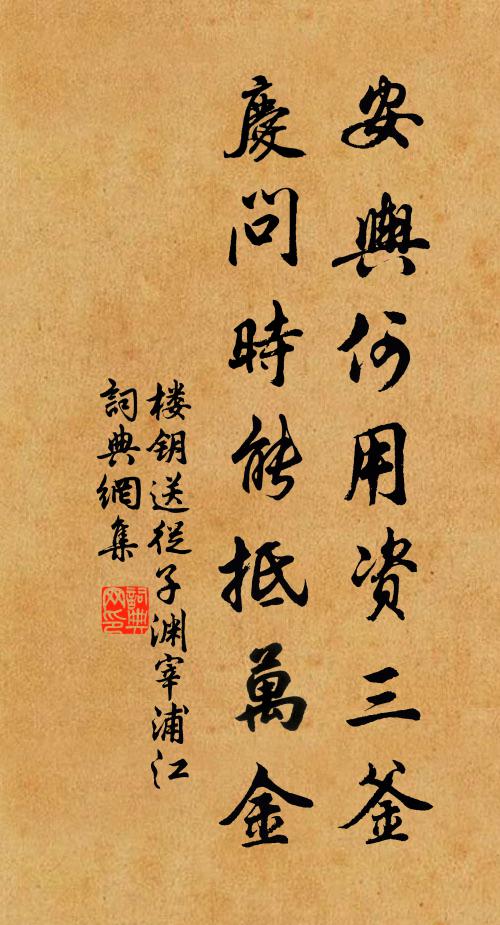 安輿何用資三釜
慶問時能抵萬金
楼钥送從子渊宰浦江
詞典網集
詞典
网印